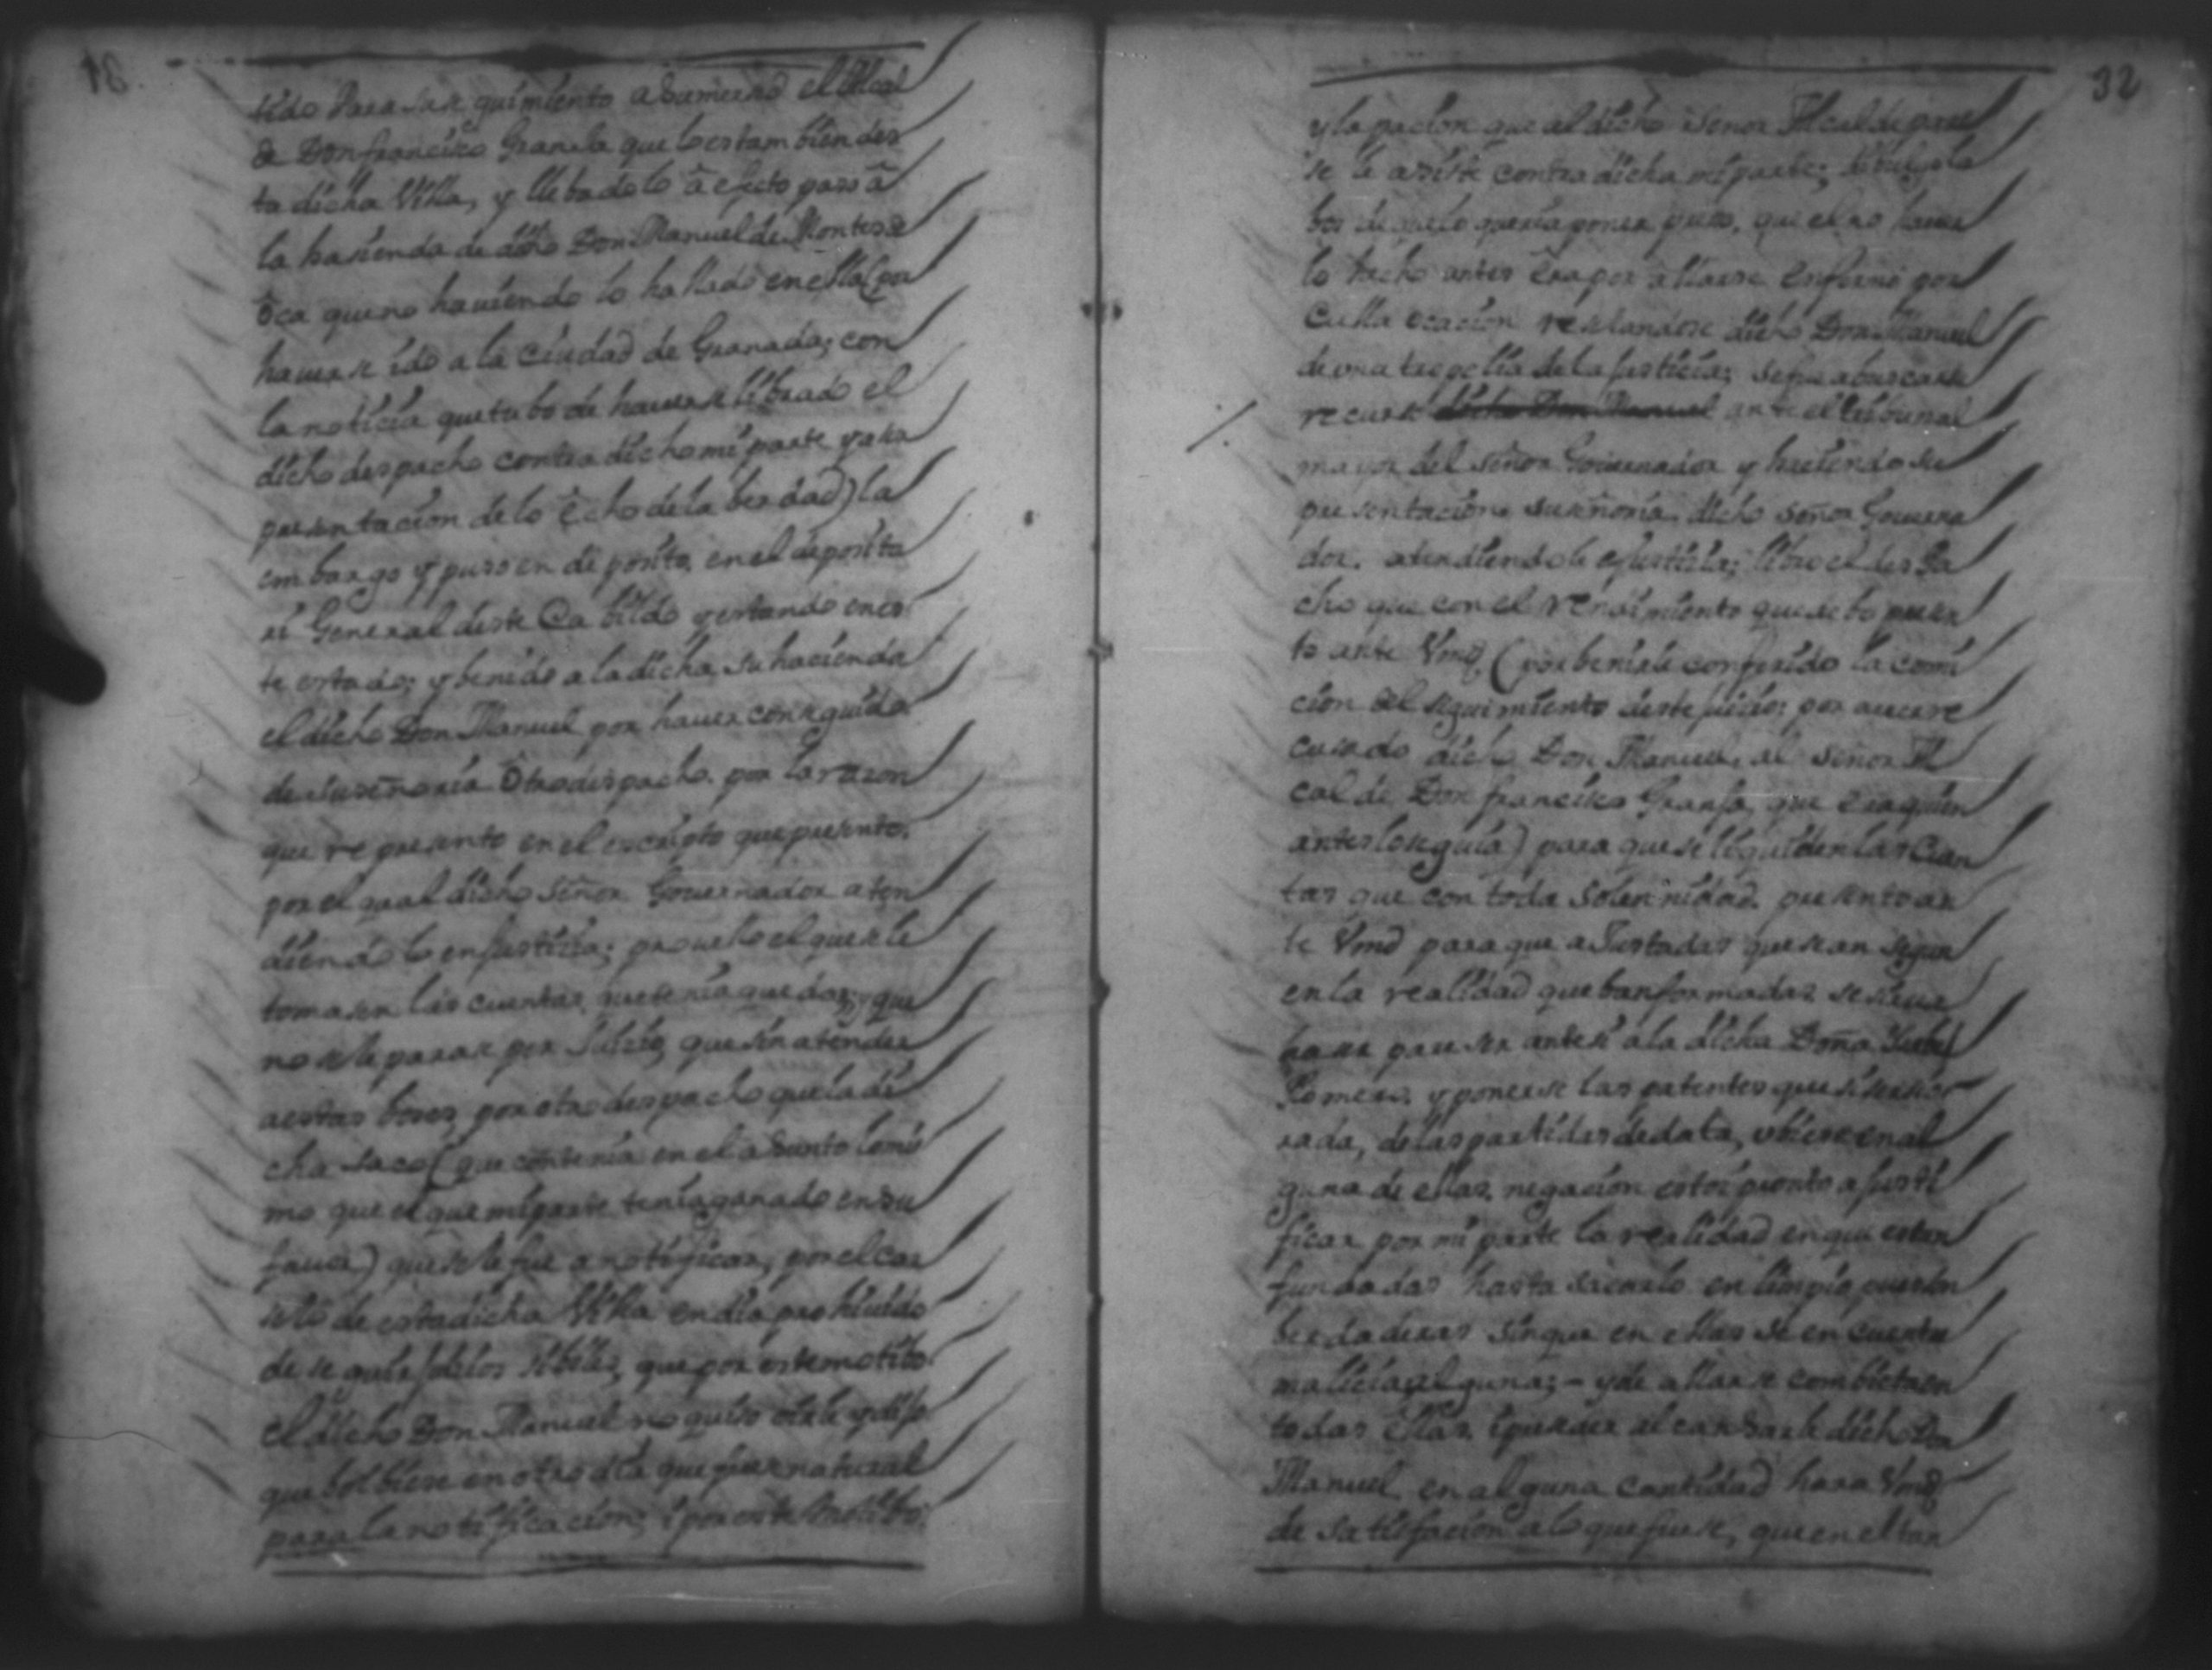 tido Para su seguimiento a su mersed el Alcal
de Don francisco Granela que lo es tambien des
ta dicha Villa, y llebadolo â efecto paso â
la hasienda de dcho Don Manuel de Montes d
ôca que no haviendo lo hallado en ella (por
haverse ido a la Ciudad de Granada; con
la noticia que tubo de haverse librado el
dicho despacho contra dicho mi parte y a su
presentacion de lo êcho de la berdad) la
embargo y puso en deposito, en el deposita
ri General deste Cabildo y estando en es
te estado; y benido a la dicha su hacienda
el dicho Don Manuel por haver conseguido
de su señoria Otro despacho. por la razon
que represento en el escripto que presento.
por el qual dicho señor Governador aten
diendo lo en justicia; proveho el que se le
tomasen las cuentas que tenia que dar; y que
no se le parase per Juizio, que sin atender
a estas boses, por otro despacho que la di
cha saco (que contenia en el asunto lo mis
mo que el que mi parte tenia ganado en su
favor) que se le fue a notificar, por el
de esta dicha Villa en dia prohivido
de seguir pleitos sibiles, que por este motibo
el dicho Don Manuel no quiso oirle y dijo
que bolbiese en otro dia que fuese natural
para la notificacion; i por este motibo;
32
y la pacion que al dicho señor Alcalde pare
se le asiste contra dicha mi parte;
que lo queria poner preso, que el no haver
lo hecho antes era por allarse Enfermo por
Culla ocacion reselandose dicho Don Manuel
de una tropelia de la justicia; se fue a buscar
recurso dicho Don Manuel ante el tribunal
mayor del señor Governador y haciendo su
presentacion a su señoria, dicho señor Governa
dor. atendiendole e justicia; libro el despa
cho que con el rendimiento que debo presen
to ante Vmd (por benirle conferido la comi
cion del seguimiento deste juicio; por averse re
cusado dicho Don Manuel, al señor Al
calde Don francisco Granela, que era quien
antes lo seguia) para que se liquiden las Cuen
tas que con toda Solennidad. presento an
te Vmd para que aJustadas que sean segun
en la realidad que ban formadas se sirva
haser pareser ante si a la dicha Doña Ysabel
Romero, y ponerse las patentes que si
rada, de las partidas de data, ubiere en al
guna de ellas negacion estoi pronto a justi
ficar por mi parte la realidad en que estan
fundadas hasta sacarlo en limpio
berdaderas sin que en ellas se encuentre
malicia alguna; - y de allarse combicta en
todas ellas i alcansarle dicho Don
Manuel en alguna cantidad hara Vmd
de satisfacion a lo que fuese, que en el tan